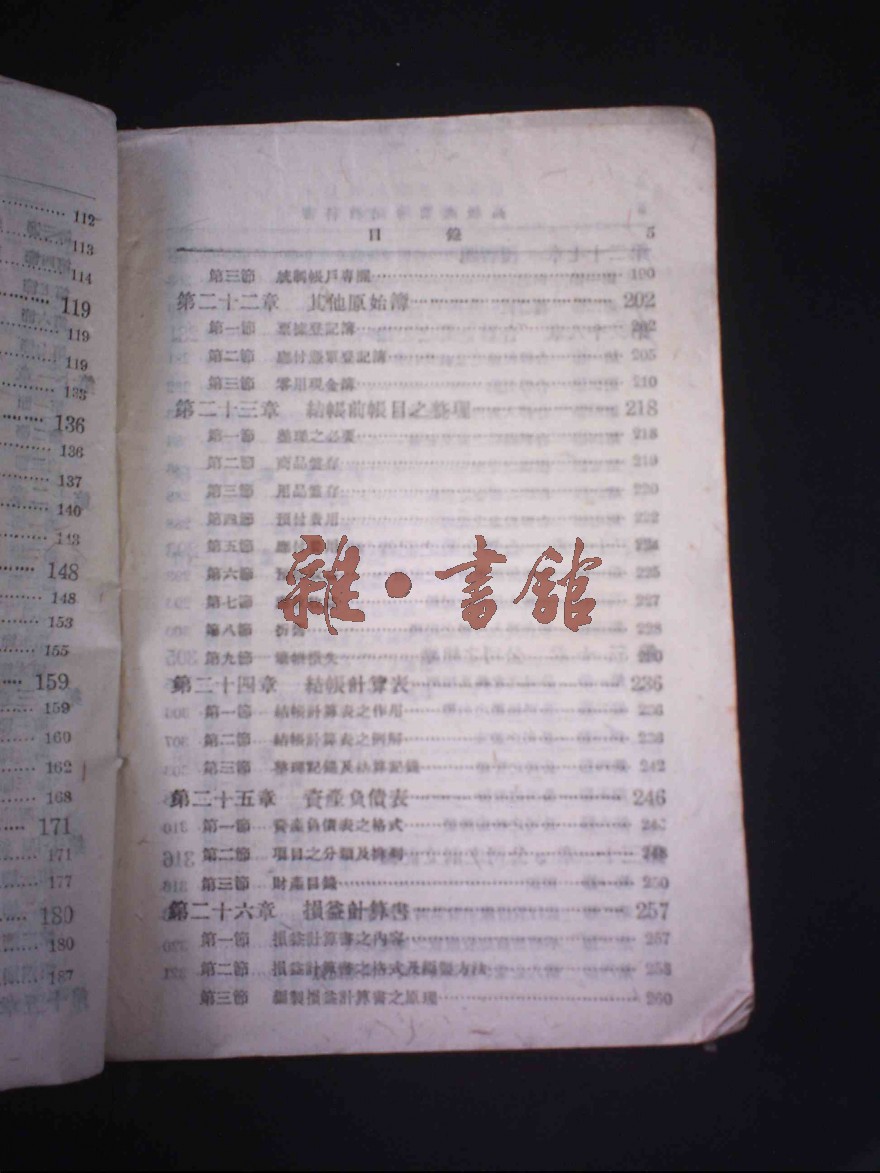 112
113
114
119
119
119
133
136
136
137
140
143
148
148
153
155
159
159
160
162
168
171
171
177
180
180
187
目 錄 5
第三節 帳戶專欄 190
第二十二章 其他原始簿 202
第一節 票據登記簿 202
第二節 應付憑單登記簿 205
第三節 零用現金簿 210
第二十三章 結帳前帳目之整理 218
第一節 整理之必要 218
第二節 商品盤存 219
第三節 用品盤存 220
第四節 預付費用 222
第五節 應付 224
第六節 225
第七節 227
第八節 折舊 228
第九節 損失 230
第二十四章 結帳計算表 236
第一節 結帳計算表之作用 236
第二節 結帳計算表之例解 236
第三節 整理記錄及結算記錄 242
第二十五章 資產負債表 246
第一節 資產負債表之格式 246
第二節 項目之分類及排列 248
第三節 財產目錄 250
第二十六章 損益計算書 257
第一節 損益計算書之內容 257
第二節 損益計算書之格式及編製方法 258
第三節 編製損益計算書之原理 260
雜·書館